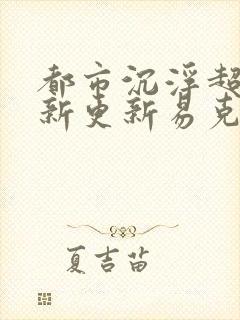 都市沉浮超
新更新易克
夏吉苗